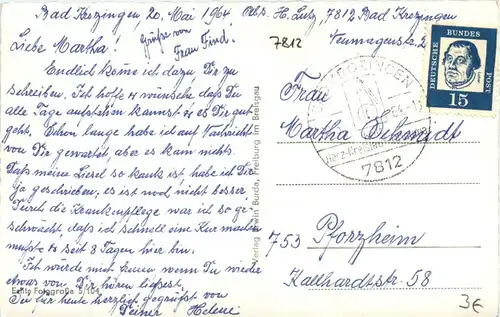 Bad Krozingen 20. Mai 1964
Abs. H. Lutz, 7812 Bad Krozingen
Grüße von
Frau Find.
7812
Liebe Martha!
Endlich komme ich dazu Dir zu
schreiben. Ich hoffe & wünsche daß Du
alle Tage aufstehen kannst & es Dir gut
geht. Schon lange habe ich auf Nachricht
von Dir gewartet, aber es kam nichts
Daß meine Liesel so krank ist habe ich Dir
ja geschrieben, es ist noch nicht besser
Durch die Krankenpflege war ich so ge-
schwächt, daß ich schnell eine Kur machen
mußte & seit 8 Tagen hier bin.
Ich würde mich freuen wenn Du wieder
etwas von Dir hören ließest.
Du für heute herzlich gegrüßt von
Deiner Helene
Echte Fotografie 5/104
Verlag Erwin Burda, Freiburg im Breisgau
DEUTSCHE BUNDESPOST
15
KROZINGEN
7812
Frau
Martha Schmidt
753 Pforzheim
Kallhardtstr. 58
3€